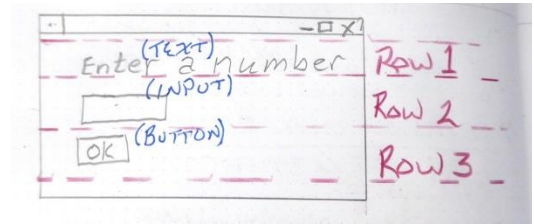 - □ X
(TEXT)
Enter a number Row 1
(INPUT)
Row 2
(BUTTON)
OK
Row 3